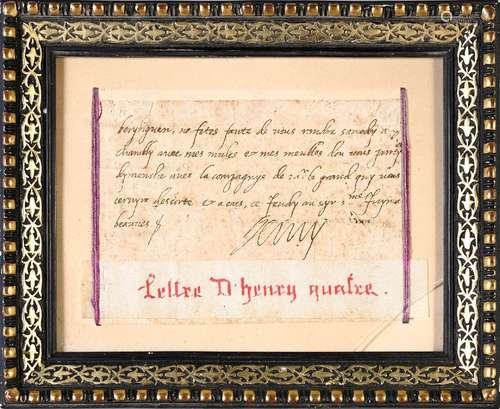 ne fetes faute de vous rendre samedy a
chantilly avec mes mules et mes meubles dou vous partyres
dymanche avec la compagnye de le grand quy vous
servyra descorte et a dieu, ce jeudy au syr
beauvès
Henry
Lettre D'henry quatre.